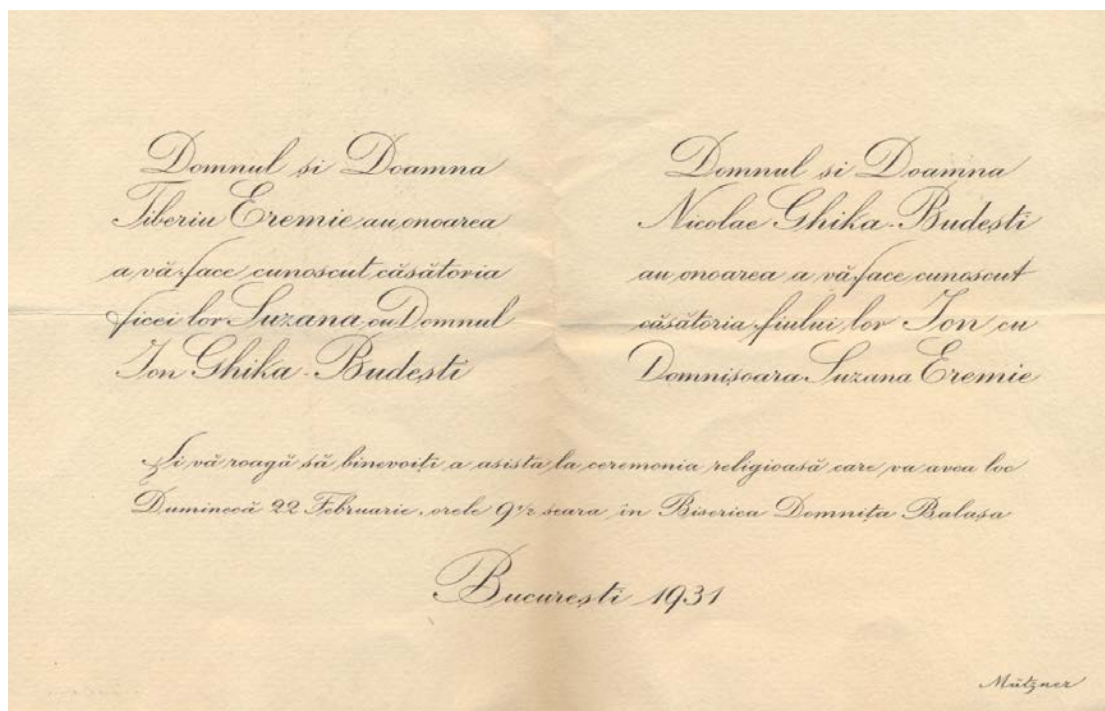 Domnul și Doamna
Tiberiu Eremie au onoarea
a vă face cunoscut căsătoria
ficei lor Suzana cu Domnul
Ion Ghika-Budești
Domnul si Doamna
Nicolae Ghika-Budești
au onoarea a vă face cunoscut
căsătoria fiului lor Ion cu
Domnișoara Suzana Eremie
Și vă roagă să binevoiți a asista la ceremonia religioasă care va avea loc
Duminecă 22 Februarie, orele 9 1/2 seara în Biserica Domnița Balașa
București 1931
Mützner